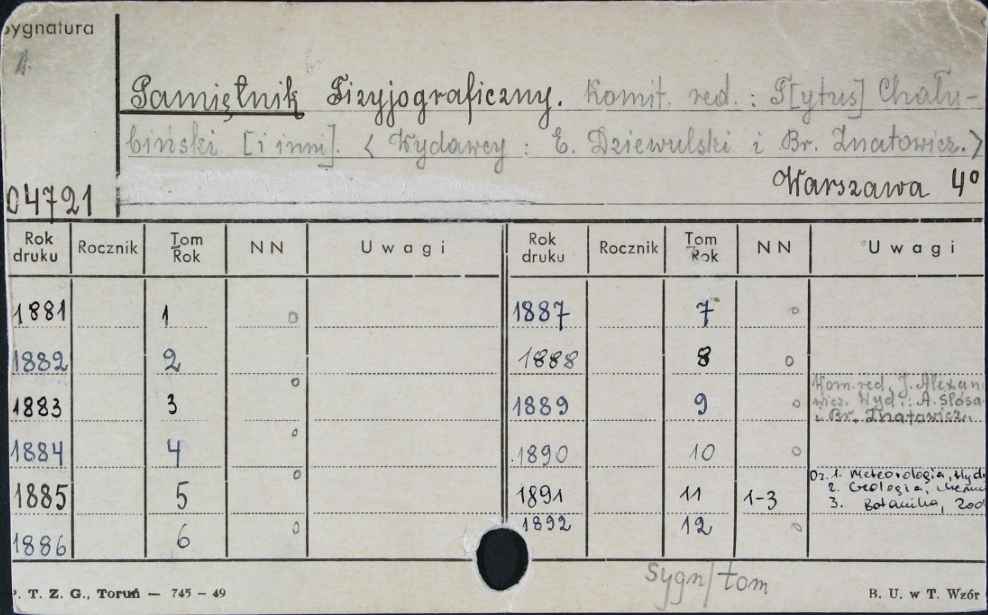 Sygnatura
Pamiętnik Fizyjograficzny. Komit. red.: T[ytus] Chału-
biński [i inni]. < Wydawcy: E. Dziewulski i Br. Znatowicz.>
Warszawa 4º
04721
Rok druku Rocznik Tom Rok NN Uwagi Rok druku Rocznik Tom Rok NN Uwagi
1881 1 o 1887 7 o
1882 2 o 1888 8 o
1883 3 o 1889 9 o Kom. red. J. Alexan
wicz. Wyd.: A. Ślósa
i Br. Znatowicz.
1884 4 o 1890 10 o
1885 5 o 1891 11 1-3 Dz. 1. Meteorologia, Hydr
2. Geologia, chemi
3. Botanika, Zoo
1886 6 1892 12 o
Sygn/tom
P. T. Z. G., Toruń — 745 — 49 B. U. w T. Wzór